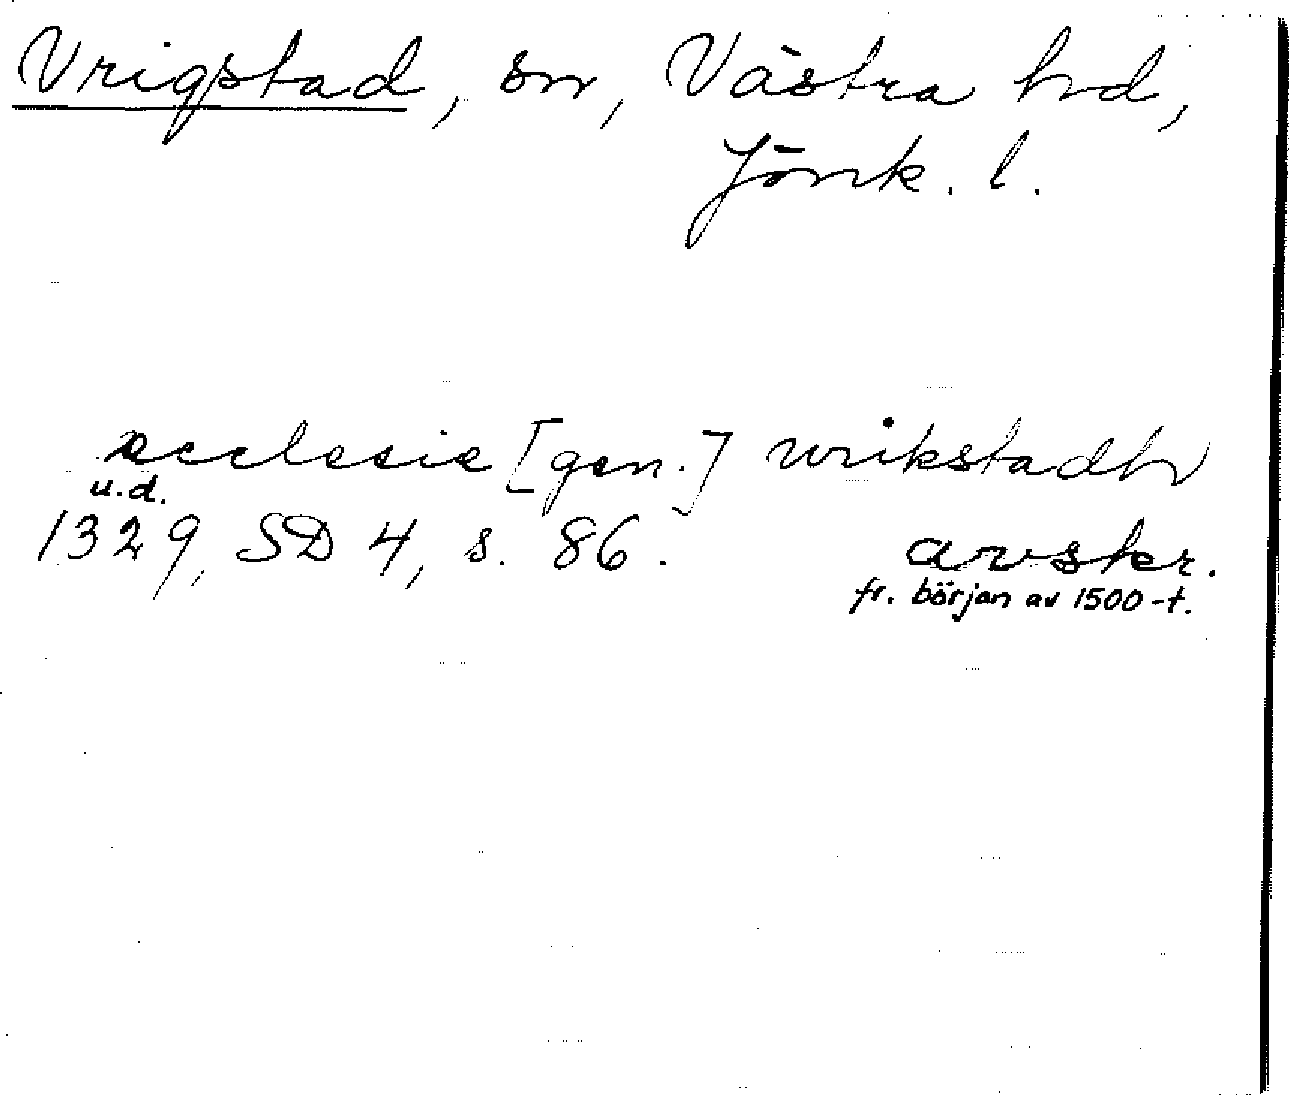 Vrigstad, sn, Västra hd,
Jönk. l.
ecclesie [gen.] wrikstadh
u.d.
1329, SD 4, s. 86. avskr.
fr. början av 1500-t.